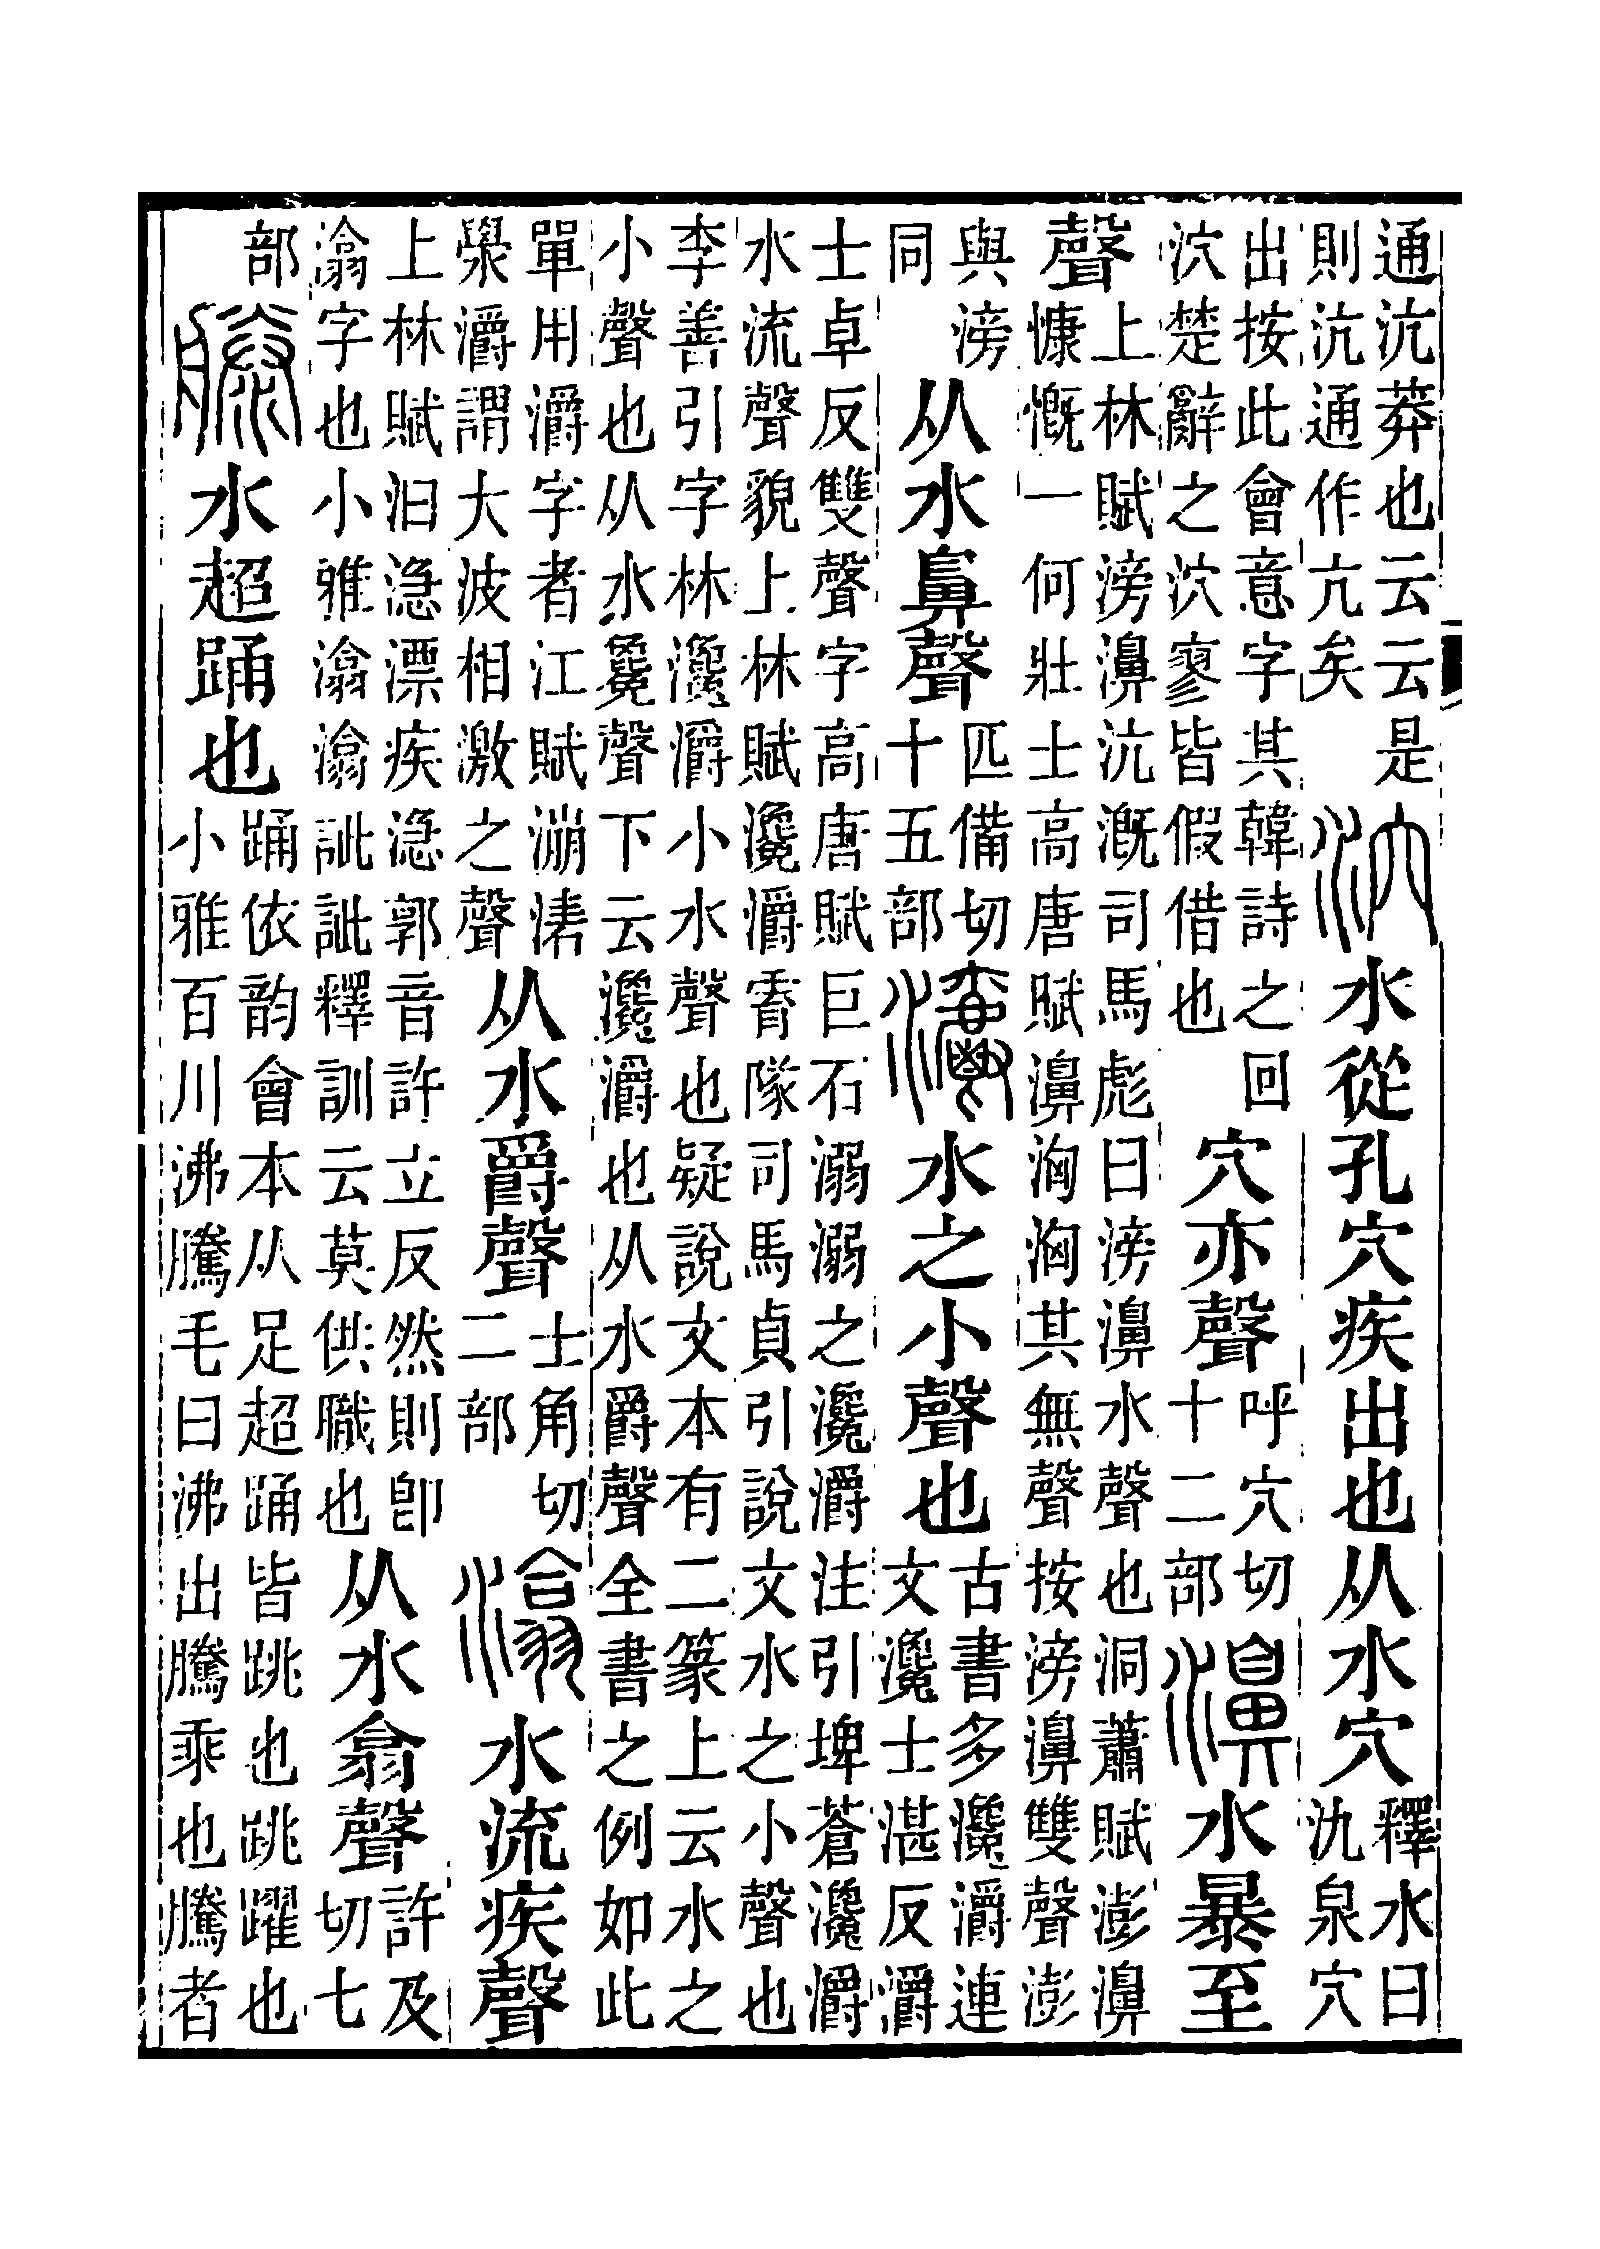 通沆莽也云云是
則沆通作亢矣
泬水從孔穴疾出也从水穴
釋水曰
氿泉穴
出按此會意字其韓詩之回
泬楚辭之泬寥皆假借也
穴亦聲
呼穴切
十二部
濞水暴至
聲
上林賦滂濞沆溉司馬彪曰滂濞水聲也洞蕭賦澎濞
慷慨一何壯士高唐賦濞洶洶其無聲按滂濞雙聲澎
與滂
同
从水鼻聲
匹備切
十五部
灂水之小聲也
古書多瀺灂連
文瀺士湛反灂
士卓反雙聲字高唐賦巨石溺溺之瀺灂注引埤蒼瀺灂
水流聲貌上林賦瀺灂霣隊司馬貞引說文水之小聲也
李善引字林瀺灂小水聲也疑說文本有二篆上云水之
小聲也从水毚聲下云瀺灂也从水爵聲全書之例如此
單用灂字者江賦漰湱
澩灂謂大波相激之聲
从水爵聲
士角切
二部
潝水流疾聲
上林賦汩㴔漂疾㴔郭音許立反然則卽
潝字也小雅潝潝訿訿釋訓云莫供職也
从水翕聲
許及
切七
部
滕水超踊也
踊依韵會本从足超踊皆跳也跳躍也
小雅百川沸騰毛曰沸出騰乘也騰者